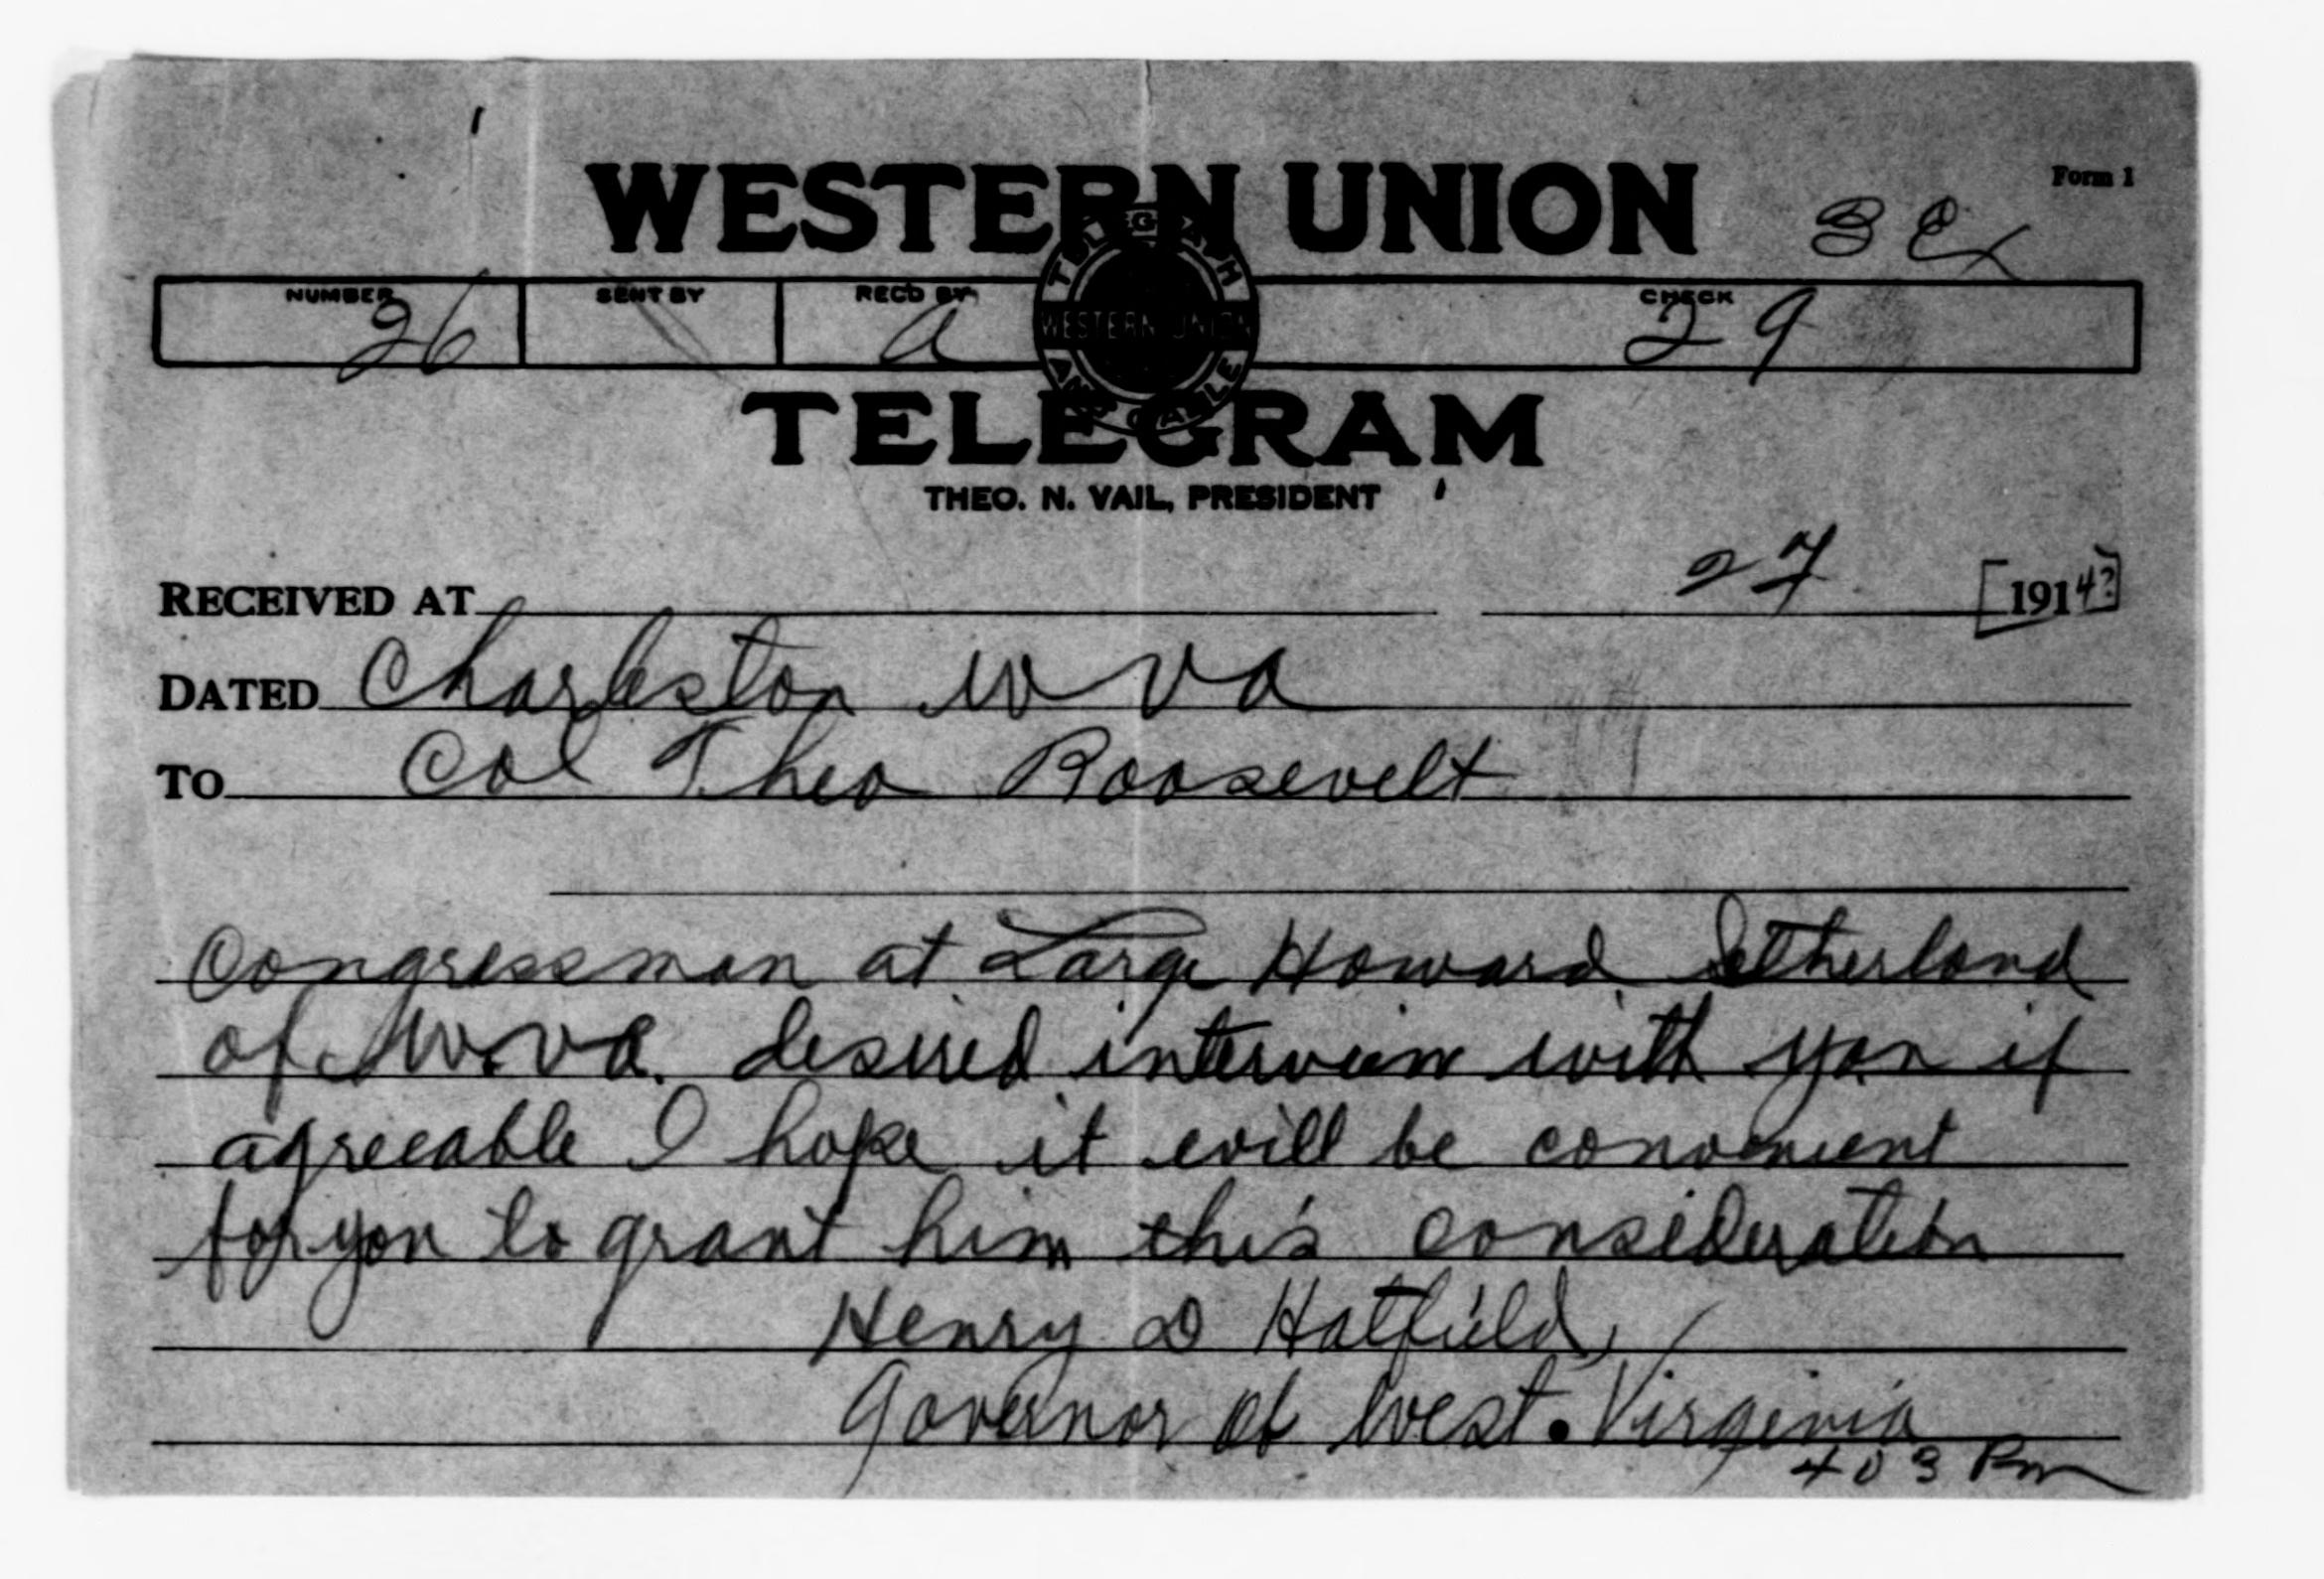 Form 1
WESTERN UNION
NUMBER SENT BY REC'D BY CHECK
26 a 29
TELEGRAPH
WESTERN UNION
AND CABLE
TELEGRAM
THEO. N. VAIL, PRESIDENT
RECEIVED AT 27 [1914?]
DATED Charleston W Va
TO Col Theo Roosevelt
Congressman at Large Howard Sutherland
of W.Va. desired interview with you if
agreeable I hope it will be convenient
for you to grant him this consideration
Henry D Hatfield,
Governor of West. Virginia
403 Pm